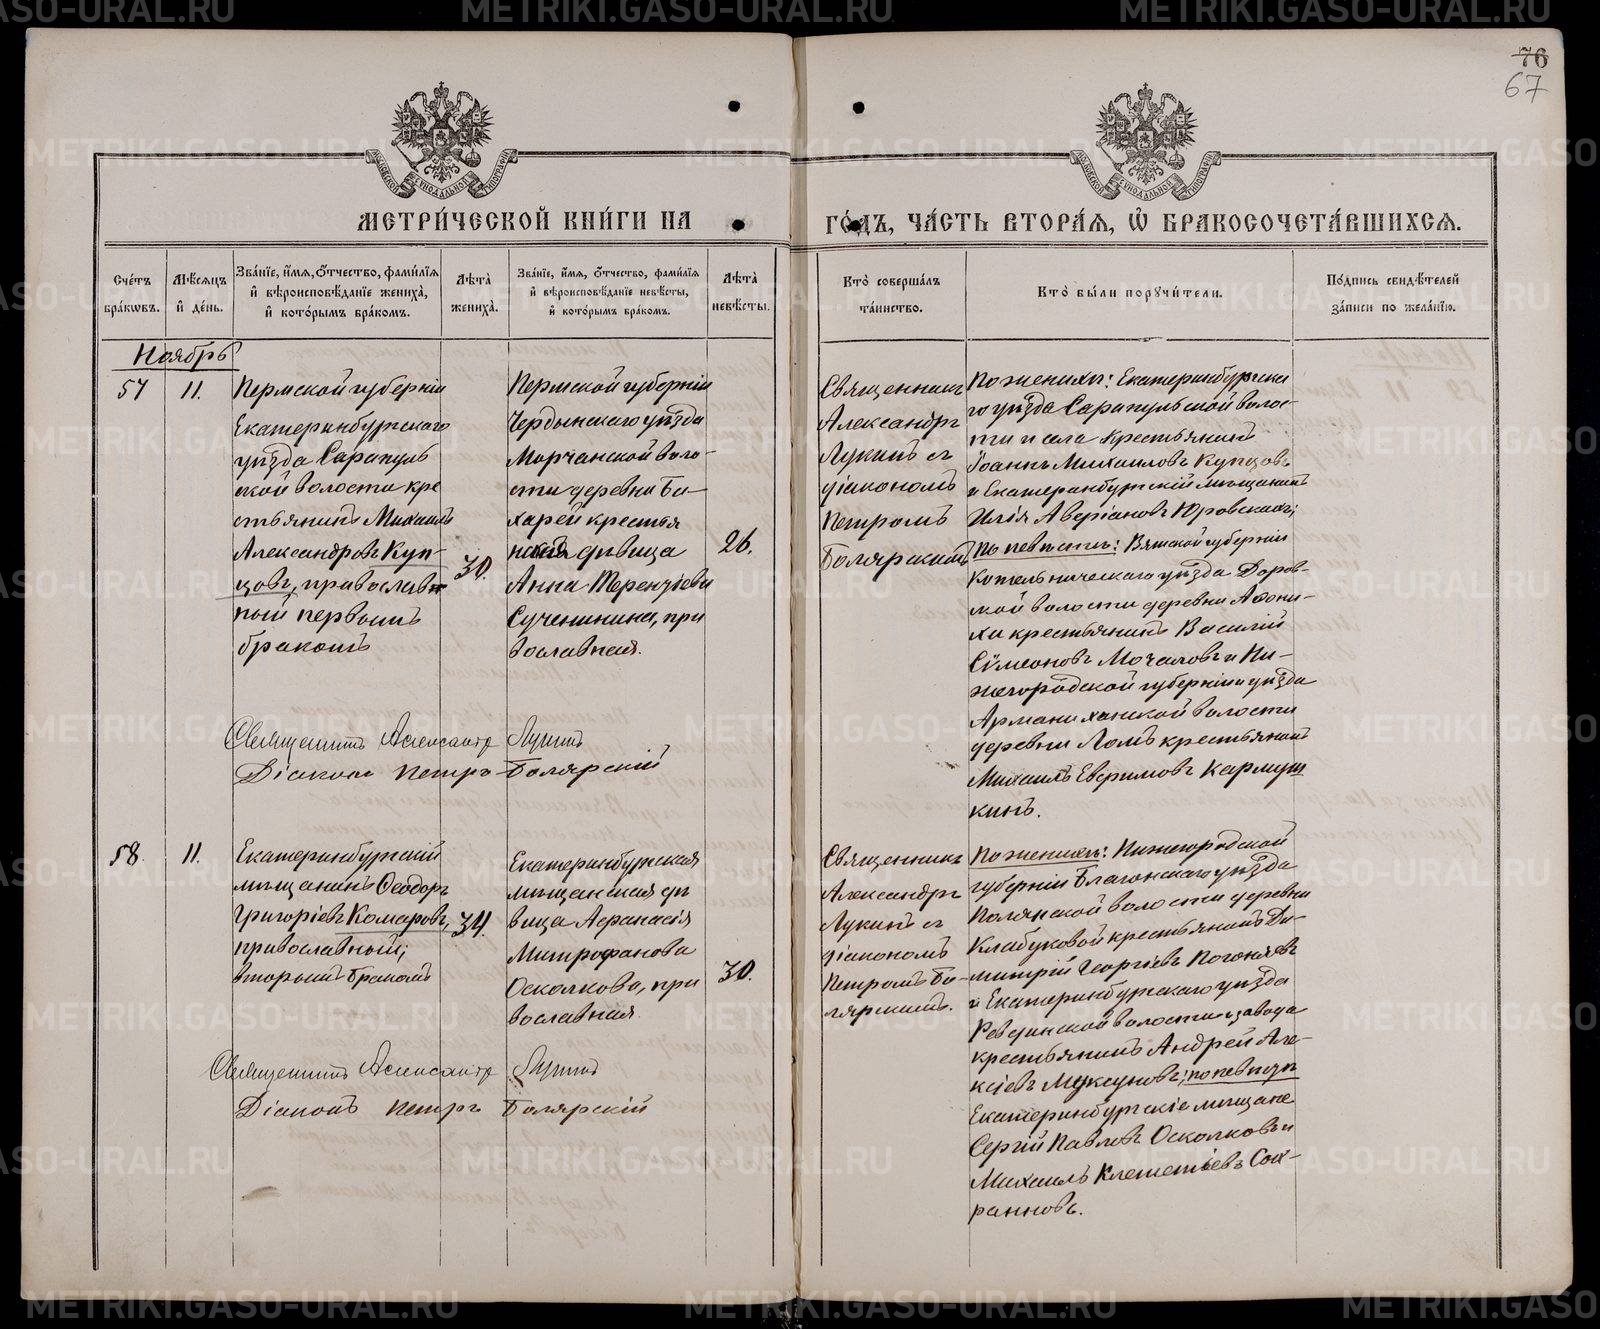 76
67
МЕТРИ́ЧЕСКОЙ КНИ́ГИ НА
ГО́ДЪ, ЧА́СТЬ ВТОРА́Я, Ѡ҆ БРАКОСОЧЕТА́ВШИХСЯ.
Сче́тъ бра́кωвъ.
Мѣ́сяцъ и҆ де́нь.
Зва́нїе, и҆́мя, ѻ҆́тчество, фами́лїя и҆ вѣроисповѣ́данїе жениха̀, и҆ кото́рымъ бра́комъ.
Лѣ̀та̀ жениха̀.
Зва́нїе, и҆́мя, ѻ҆́тчество, фами́лїя и҆ вѣроисповѣ́данїе невѣ́сты, и҆ кото́рымъ бра́комъ.
Лѣ̀та̀ невѣ́сты.
Кто̀ соверша́лъ та́инство.
Кто̀ бы́ли поручи́тели.
По́дпись свидѣ́телей за́писи по жела́нїю.
Ноябрь
57
11.
Пермской губерніи
Екатеринбургскаго
уѣзда Сарапуль
ской волости кре
стьянинъ Михаилъ
Александровъ Куп-
цовъ, православ
ный первымъ
бракомъ
30.
Пермской губерніи
Чердынскаго уѣзда
Морчанской воло-
сти деревни Ба-
харей крестья
нская дѣвица
Анна Терентіева
Сученинина, пра
вославная.
26.
Священникъ
Александръ
Лукинъ съ
діакономъ
Петромъ
Болярскимъ
По женихѣ: Екатеринбургска
го уѣзда Сарапульской волос-
ти и села крестьянинъ
Іоаннъ Михаиловъ Купцовъ
и Екатеринбургскій мѣщанинъ
Илія Аверіановъ Юровскихъ;
По невѣстѣ: Вятской губерніи
Котельническаго уѣзда Даров-
ской волости деревни Афони-
ха крестьянинъ Василій
Сѵмеоновъ Мочаловъ и Ни-
жегородской губерніи и уѣзда
Арманиханской волости
деревни Ломъ крестьянинъ
Михаилъ Ефримовъ Кармуш
кинъ.
Священникъ Александръ Лукинъ
Діаконъ Петръ Болярскій
58.
11.
Екатеринбургскій
мѣщанинъ Ѳеодоръ
Григоріевъ Комаровъ,
православный;
вторымъ бракомъ
34.
Екатеринбургская
мѣщанская дѣ
вица Афанасія
Митрофанова
Осколкова, пра
вославная.
30.
Священникъ
Александръ
Лукинъ съ
діакономъ
Петромъ Бо-
лярскимъ.
По женихѣ: Нижегородской
губерніи уѣзда
Полянской волости деревни
Клабуковой крестьянинъ Ди-
митрій Георгіевъ Погоняевъ
и Екатеринбургскаго уѣзда
Ревдинской волости и завода
крестьянинъ Андрей Але-
ксіевъ Муксуновъ; по невѣстѣ
Екатеринбургскіе мѣщане
Сергій Павловъ Осколковъ и
Михаилъ Клементіевъ Сох-
ранновъ.
Священникъ Александръ Лукинъ
Діаконъ Петръ Болярскій